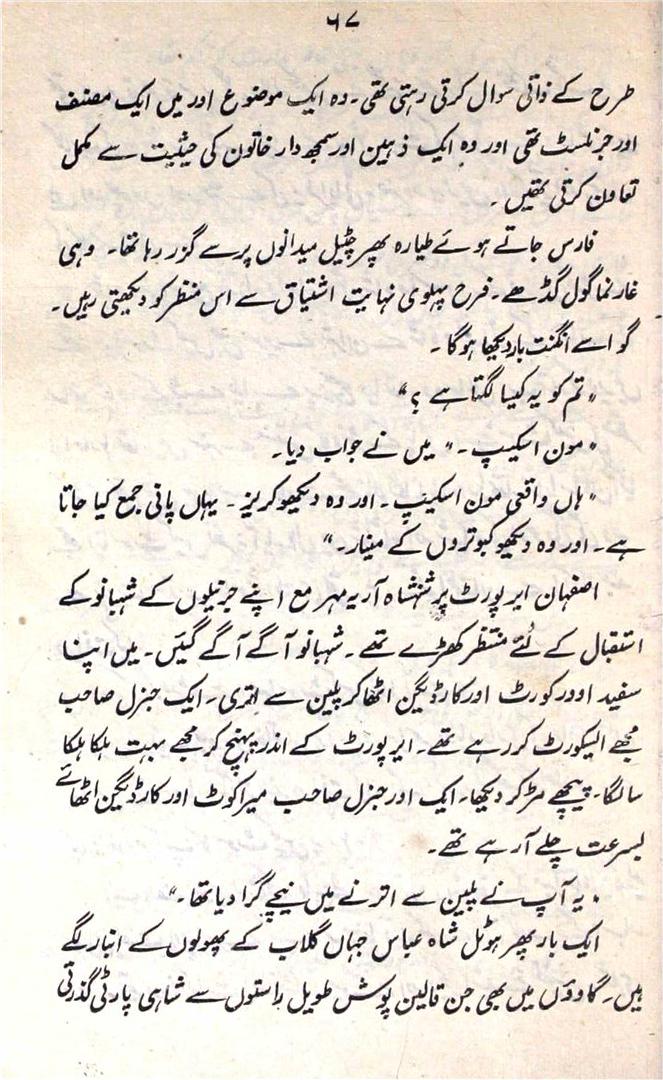 ۶۷
طرح کے ذاتی سوال کرتی رہتی تھی۔ وہ ایک موضوع اور میں ایک مصنف
اور جرنلسٹ تھی اور وہ ایک ذہین اور سمجھ دار خاتون کی حیثیت سے مکمل
تعاون کرتی تھیں۔
فارس جاتے ہوئے طیارہ پھر چٹیل میدانوں پر سے گزر رہا تھا۔ وہی
غار نما گول گڈھے۔ فرح پہلوی نہایت اشتیاق سے اس منظر کو دیکھتی رہیں۔
گو اسے انگنت بار دیکھا ہوگا۔
"تم کو یہ کیسا لگتا ہے؟"
"مون اسکیپ۔" میں نے جواب دیا۔
"ہاں واقعی مون اسکیپ۔ اور وہ دیکھو کریز۔ یہاں پانی جمع کیا جاتا
ہے۔ اور وہ دیکھو کبوتروں کے مینار۔"
اصفہان ایرپورٹ پر شہنشاہ آریہ مہر مع اپنے جرنیلوں کے شہبانو کے
استقبال کے لئے منتظر کھڑے تھے۔ شہبانو آگے آگے گئیں۔ میں اپنا
سفید اوورکورٹ اور کارڈیگن اٹھا کر پلین سے اتری۔ ایک جنرل صاحب
مجھے الیکورٹ کر رہے تھے۔ ایرپورٹ کے اندر پہنچ کر مجھے بہت ہلکا ہلکا
سا لگا۔ پیچھے مڑ کر دیکھا۔ ایک اور جنرل صاحب میرا کوٹ اور کارڈیگن اٹھائے
بسرعت چلے آ رہے تھے۔
"یہ آپ نے پلین سے اترنے میں نیچے گرا دیا تھا۔"
ایک بار پھر ہوٹل شاہ عباس جہاں گلاب کے پھولوں کے انبار لگے
ہیں۔ گاوؤں میں بھی جن قالین پوش طویل راستوں سے شاہی پارٹی گذرتی